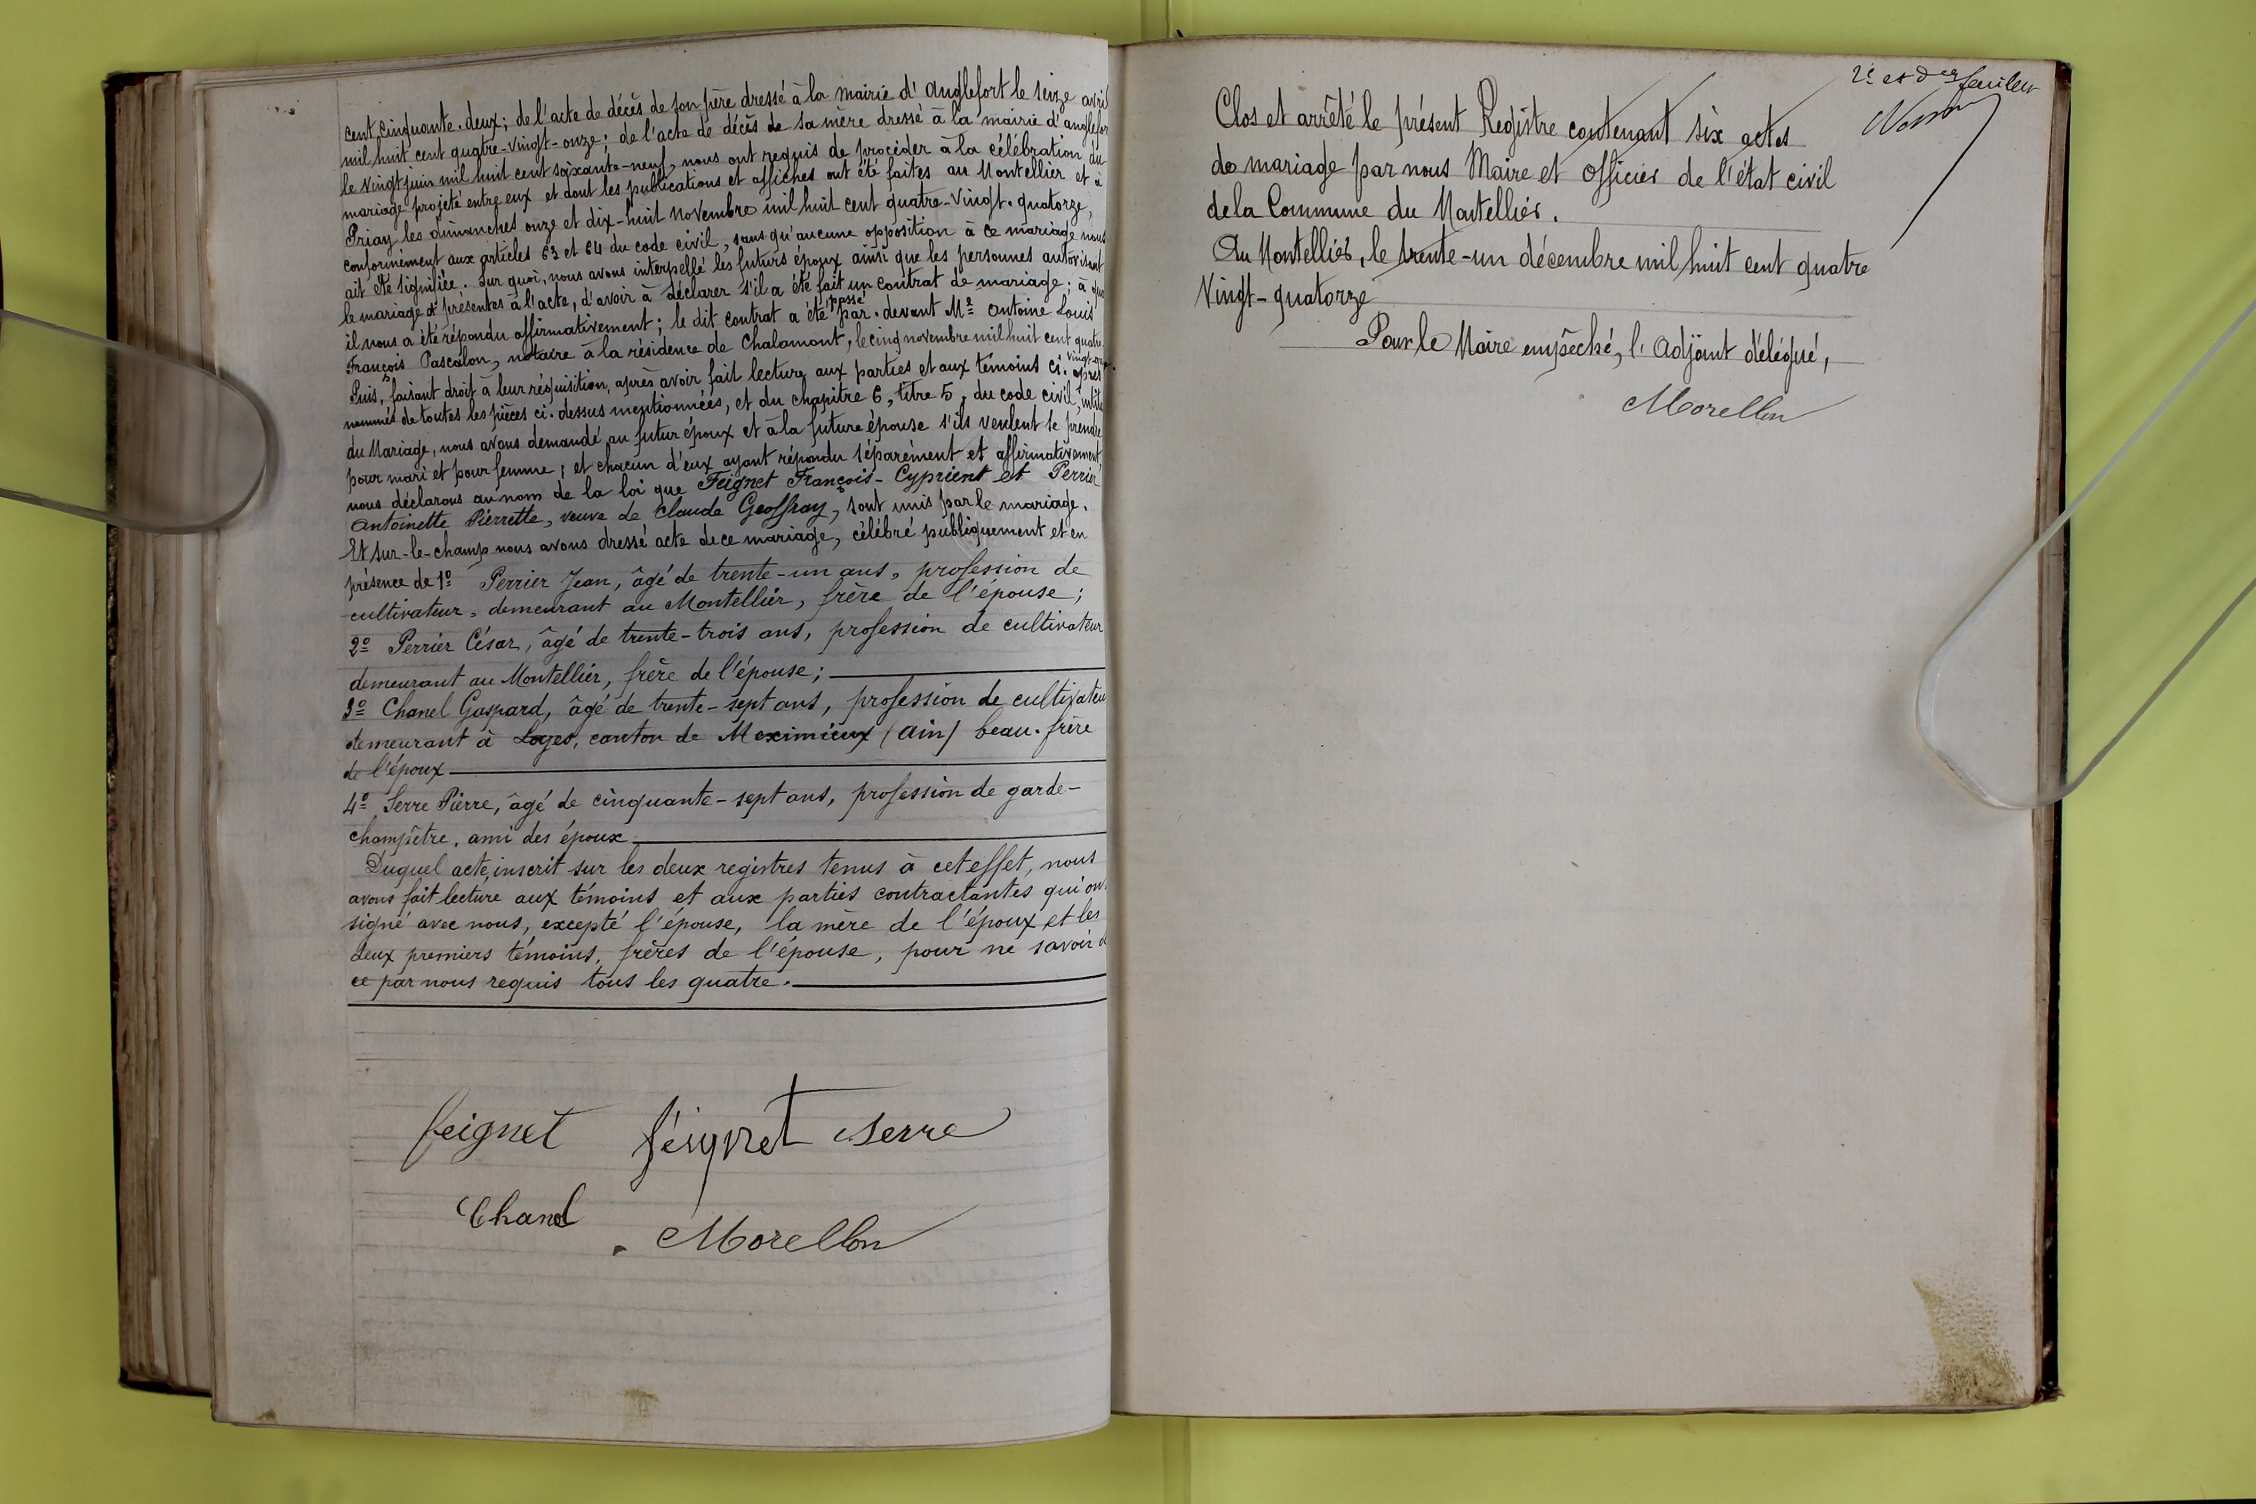 cent cinquante-deux ; de l'acte de décès de son père dressé à la mairie d'anglefort le seize avril
mil huit cent quatre-vingt-onze ; de l'acte de décès de sa mère dressé à la mairie d'anglefor
le vingt juin mil huit cent soixante-neuf, nous ont requis de procéder à la célébration du
mariage projeté entre eux et dont les publications et affiches ont été faites au Montellier et à
Priay les dimanches onze et dix-huit novembre mil huit cent quatre-vingt-quatorze,
conformément aux articles 63 et 64 du code civil, sans qu'aucune opposition à ce mariage nous
ait été signifiée. Sur quoi, nous avons interpellé les futurs époux ainsi que les personnes autorisant
le mariage et présentes à l'acte, d'avoir à déclarer s'il a été fait un contrat de mariage ; à quoi
il nous a été répondu affirmativement ; le dit contrat a été passé par-devant Me antoine Louis
François Pascalon, notaire à la résidence de Chalamont, le cinq novembre mil huit cent quatre
vingt
Puis, faisant droit à leur réquisition, après avoir fait lecture aux parties et aux témoins ci-après
nommés de toutes les pièces ci-dessus mentionnées, et du chapitre 6, titre 5, du code civil, intitu
du Mariage, nous avons demandé au futur époux et à la future épouse s'ils veulent se prendre
pour mari et pour femme ; et chacun d'eux ayant répondu séparément et affirmativement
nous déclarons au nom de la loi que Feignet François-Cyprient et Perrier
antoinette Pierrette, veuve de Claude Geoffray, sont unis par le mariage.
Et sur-le-champ nous avons dressé acte de ce mariage, célébré publiquement et en
présence de 1o Perrier Jean, âgé de trente-un ans, profession de
cultivateur, demeurant au Montellier, frère de l'épouse ;
2o Perrier César, âgé de trente-trois ans, profession de cultivateur
demeurant au Montellier, frère de l'épouse ;
3o Chanel Gaspard, âgé de trente-sept ans, profession de cultivateu
demeurant à Loyes, canton de Meximieux (ain) beau-frère
de l'époux
4o Serre Pierre, âgé de cinquante-sept ans, profession de garde-
champêtre, ami des époux
Duquel acte, inscrit sur les deux registres tenus à cet effet, nous
avons fait lecture aux témoins et aux parties contractantes qui ont
signé avec nous, excepté l'épouse, la mère de l'époux et les
deux premiers témoins, frères de l'épouse, pour ne savoir d
ce par nous requis tous les quatre.
feignet feignet Serre
Chanel Morellon
2e et der feuillet
Clos et arrêté le présent Registre contenant six actes
de mariage par nous Maire et Officier de l'état civil
de la Commune du Montellier.
Au Montellier, le trente-un décembre mil huit cent quatre
vingt-quatorze
Pour le Maire empêché, l'adjoint délégué,
Morellon